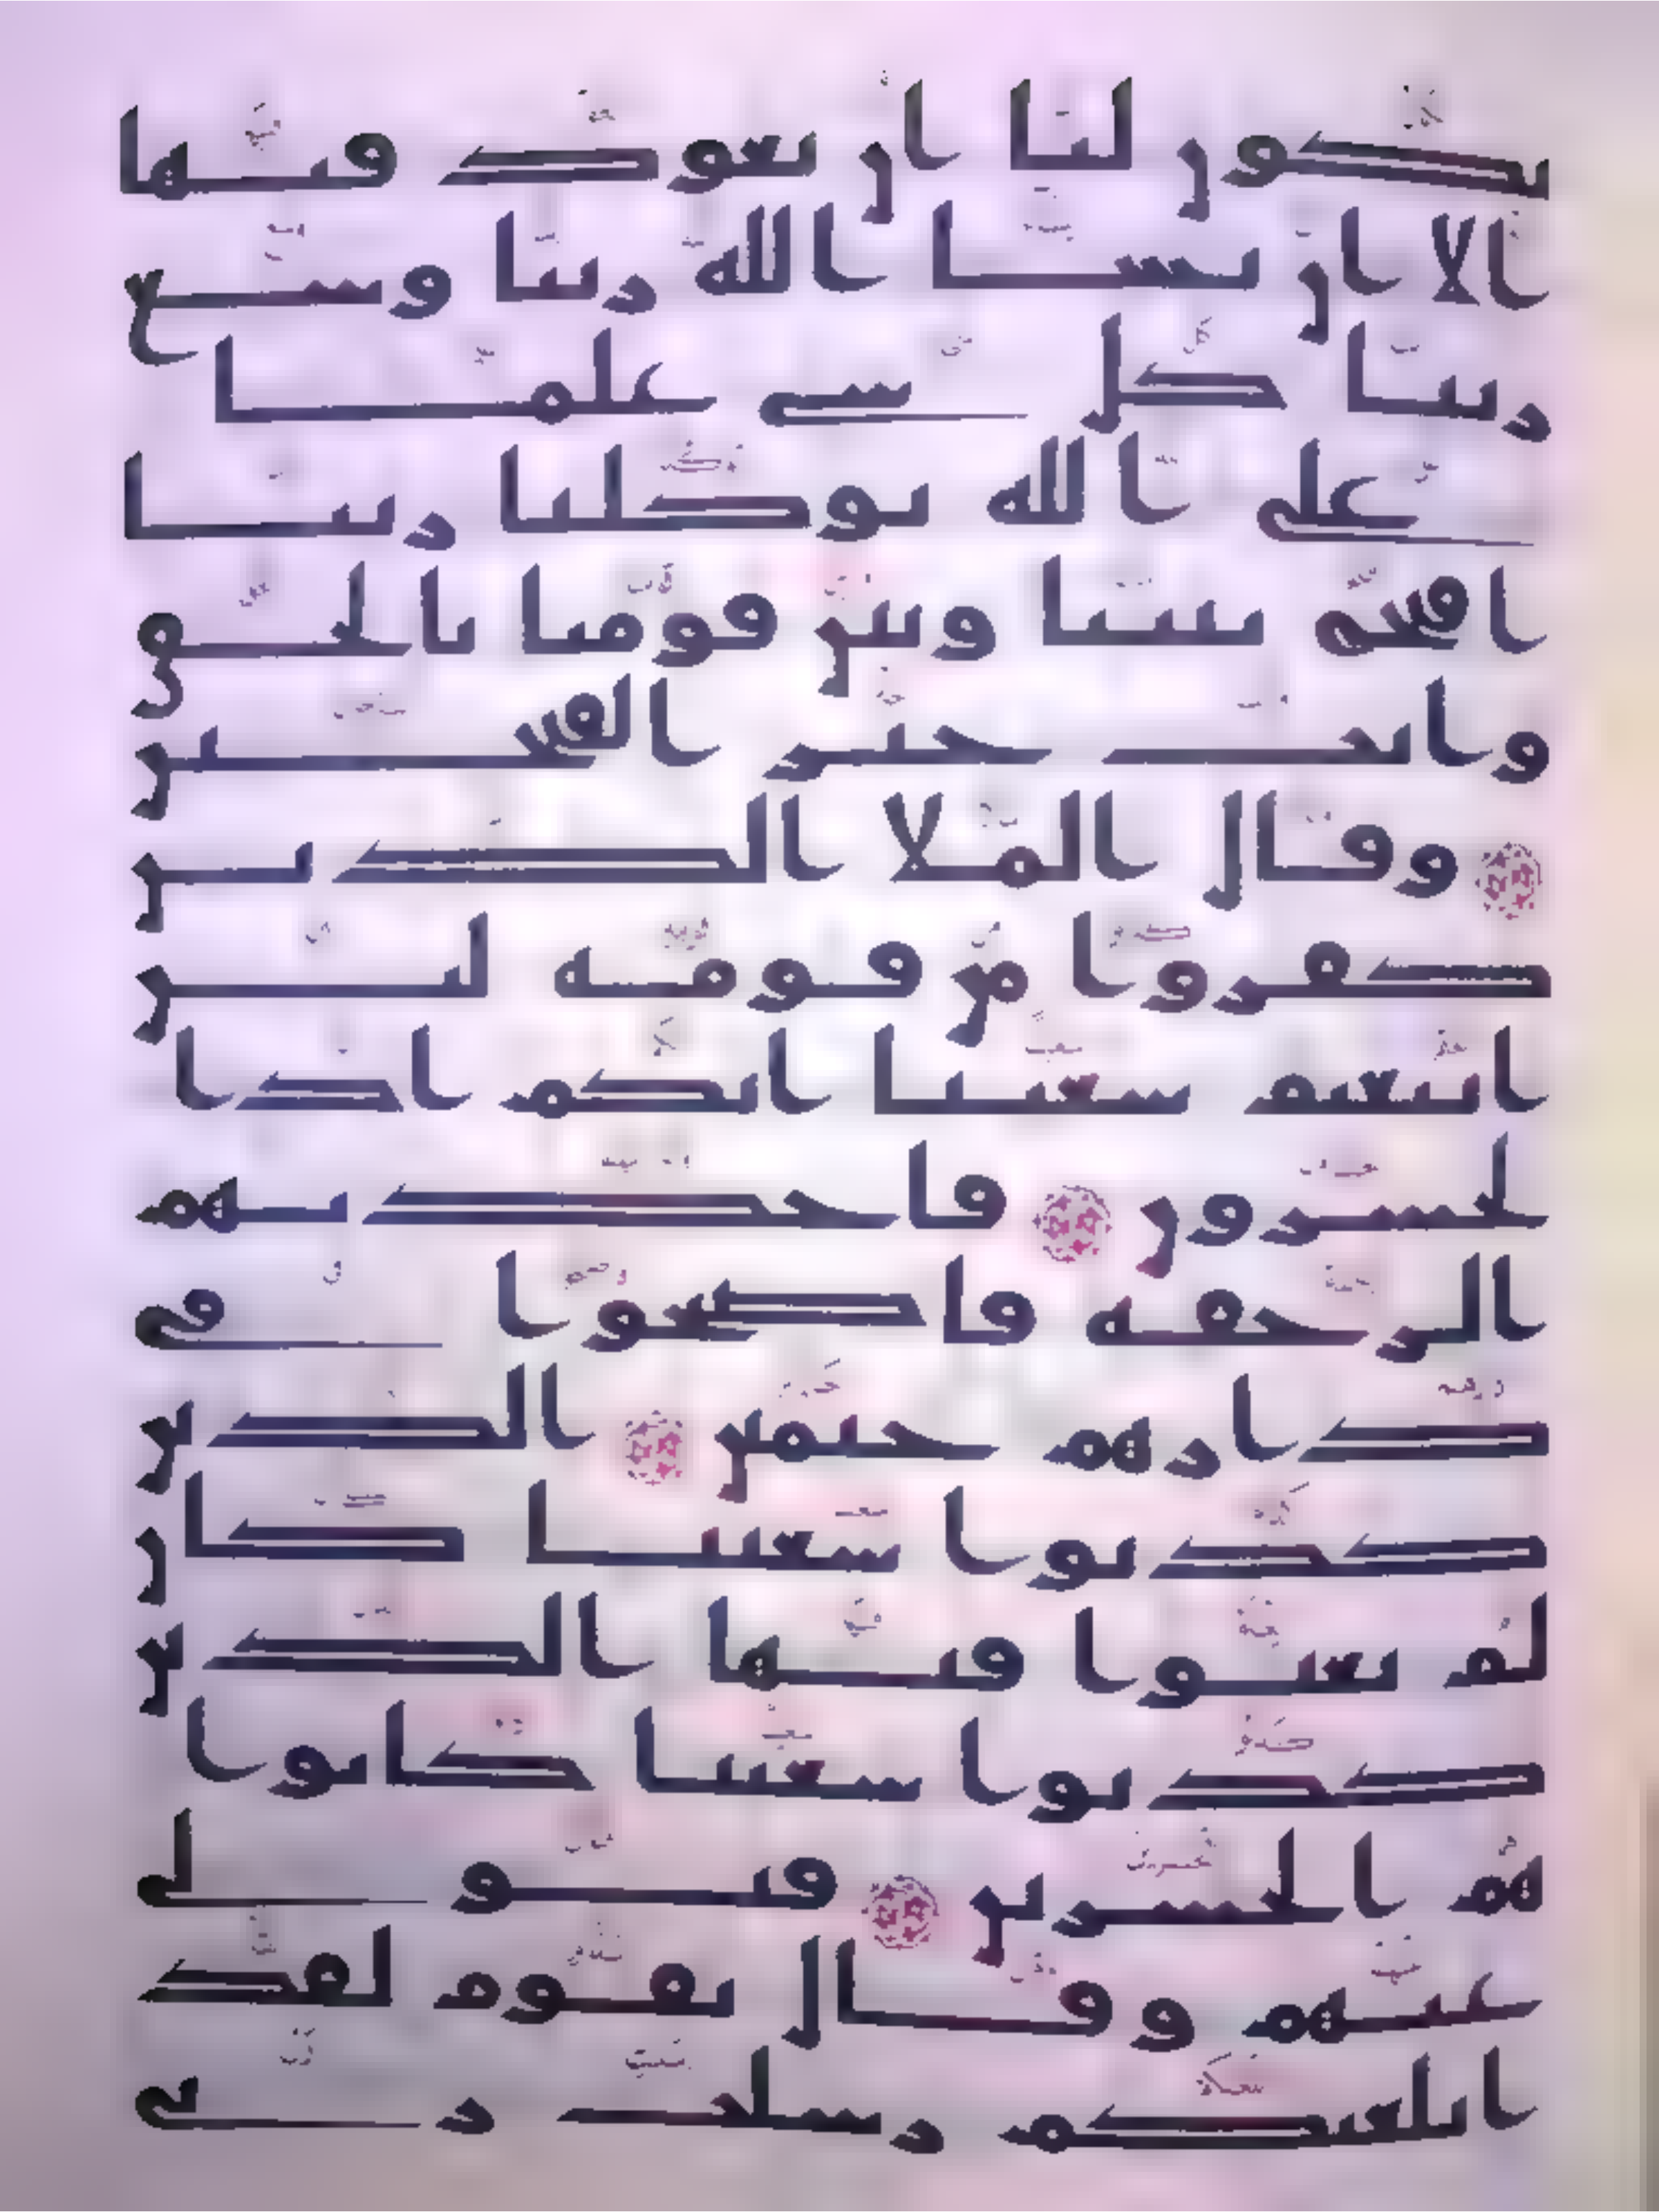 يكون لنا ان نعود فيها
الا ان يشا الله ربنا وسع
ربنا كل شي علما
على الله توكلنا ربنا
افتح بيننا وبين قومنا بالحق
وانت خير الفتحين
وقال الملا الذين
كفروا من قومه لين
اتبعتم شعيبا انكم اذا
لخسرون فاخذتهم
الرجفة فاصبحوا في
دارهم جثمين الذين
كذبوا شعيبا كان
لم يغنوا فيها الذين
كذبوا شعيبا كانوا
هم الخسرين فتولى
عنهم وقال يقوم لقد
ابلغتكم رسلت ربي